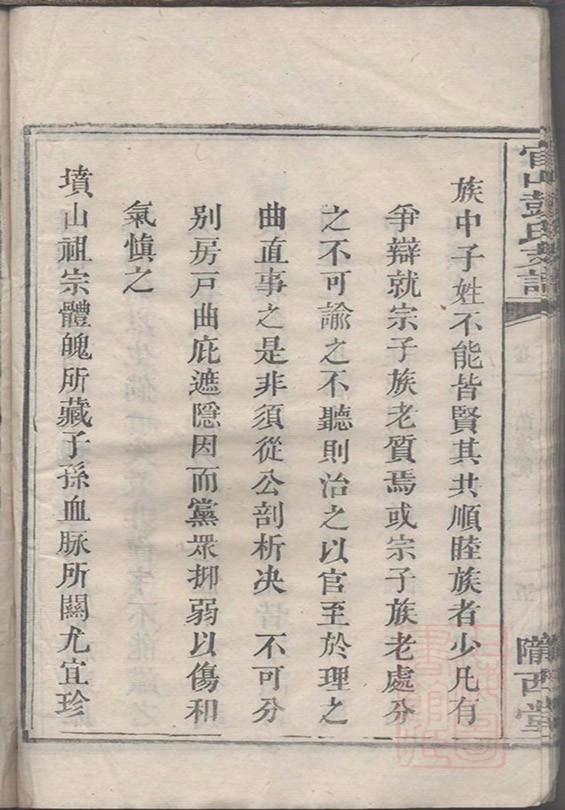 官山彭氏支譜
隴西堂
族中子姓不能皆賢其共順睦族者少凡有
爭辯就宗子族老質焉或宗子族老處分
之不可諭之不聽則治之以官至於理之
曲直事之是非須從公剖析決 不可分
别房戸曲庇遮隱因而黨眾抑弱以傷和
氣慎之
墳山祖宗體魄所藏子孫血脉所關尤宜珍